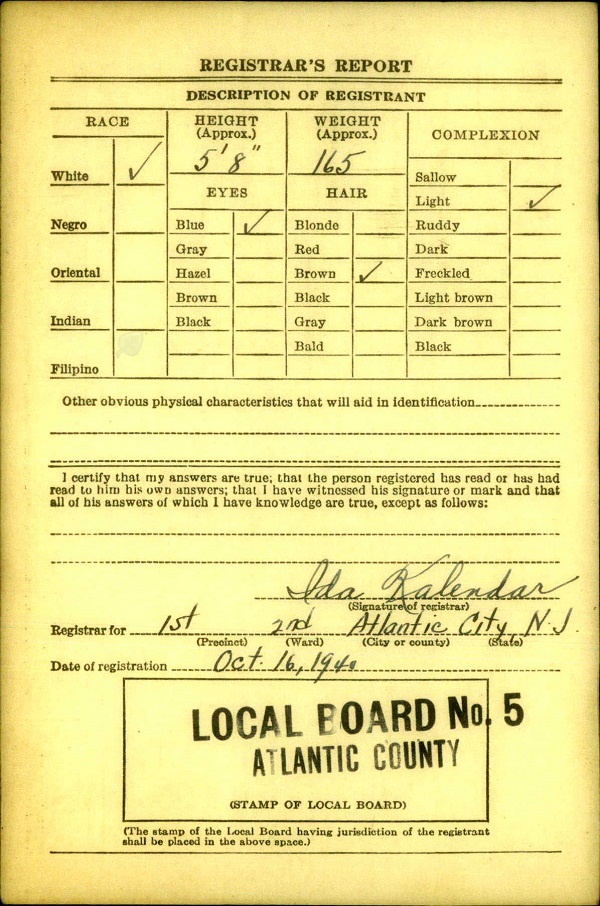 REGISTRAR'S REPORT
DESCRIPTION OF REGISTRANT
RACE
HEIGHT
(Approx.)
WEIGHT
(Approx.)
COMPLEXION
5' 8"
165
White ✓
Sallow
EYES
HAIR
Light ✓
Negro
Blue ✓
Blonde
Ruddy
Gray
Red
Dark
Oriental
Hazel
Brown ✓
Freckled
Brown
Black
Light brown
Indian
Black
Gray
Dark brown
Bald
Black
Filipino
Other obvious physical characteristics that will aid in identification
I certify that my answers are true; that the person registered has read or has had
read to him his own answers; that I have witnessed his signature or mark and that
all of his answers of which I have knowledge are true, except as follows:
Ida Kalendar
(Signature of registrar)
Registrar for 1st 2nd Atlantic City, N.J.
(Precinct) (Ward) (City or county) (State)
Date of registration Oct. 16, 1940
LOCAL BOARD No. 5
ATLANTIC COUNTY
(STAMP OF LOCAL BOARD)
(The stamp of the Local Board having jurisdiction of the registrant
shall be placed in the above space.)